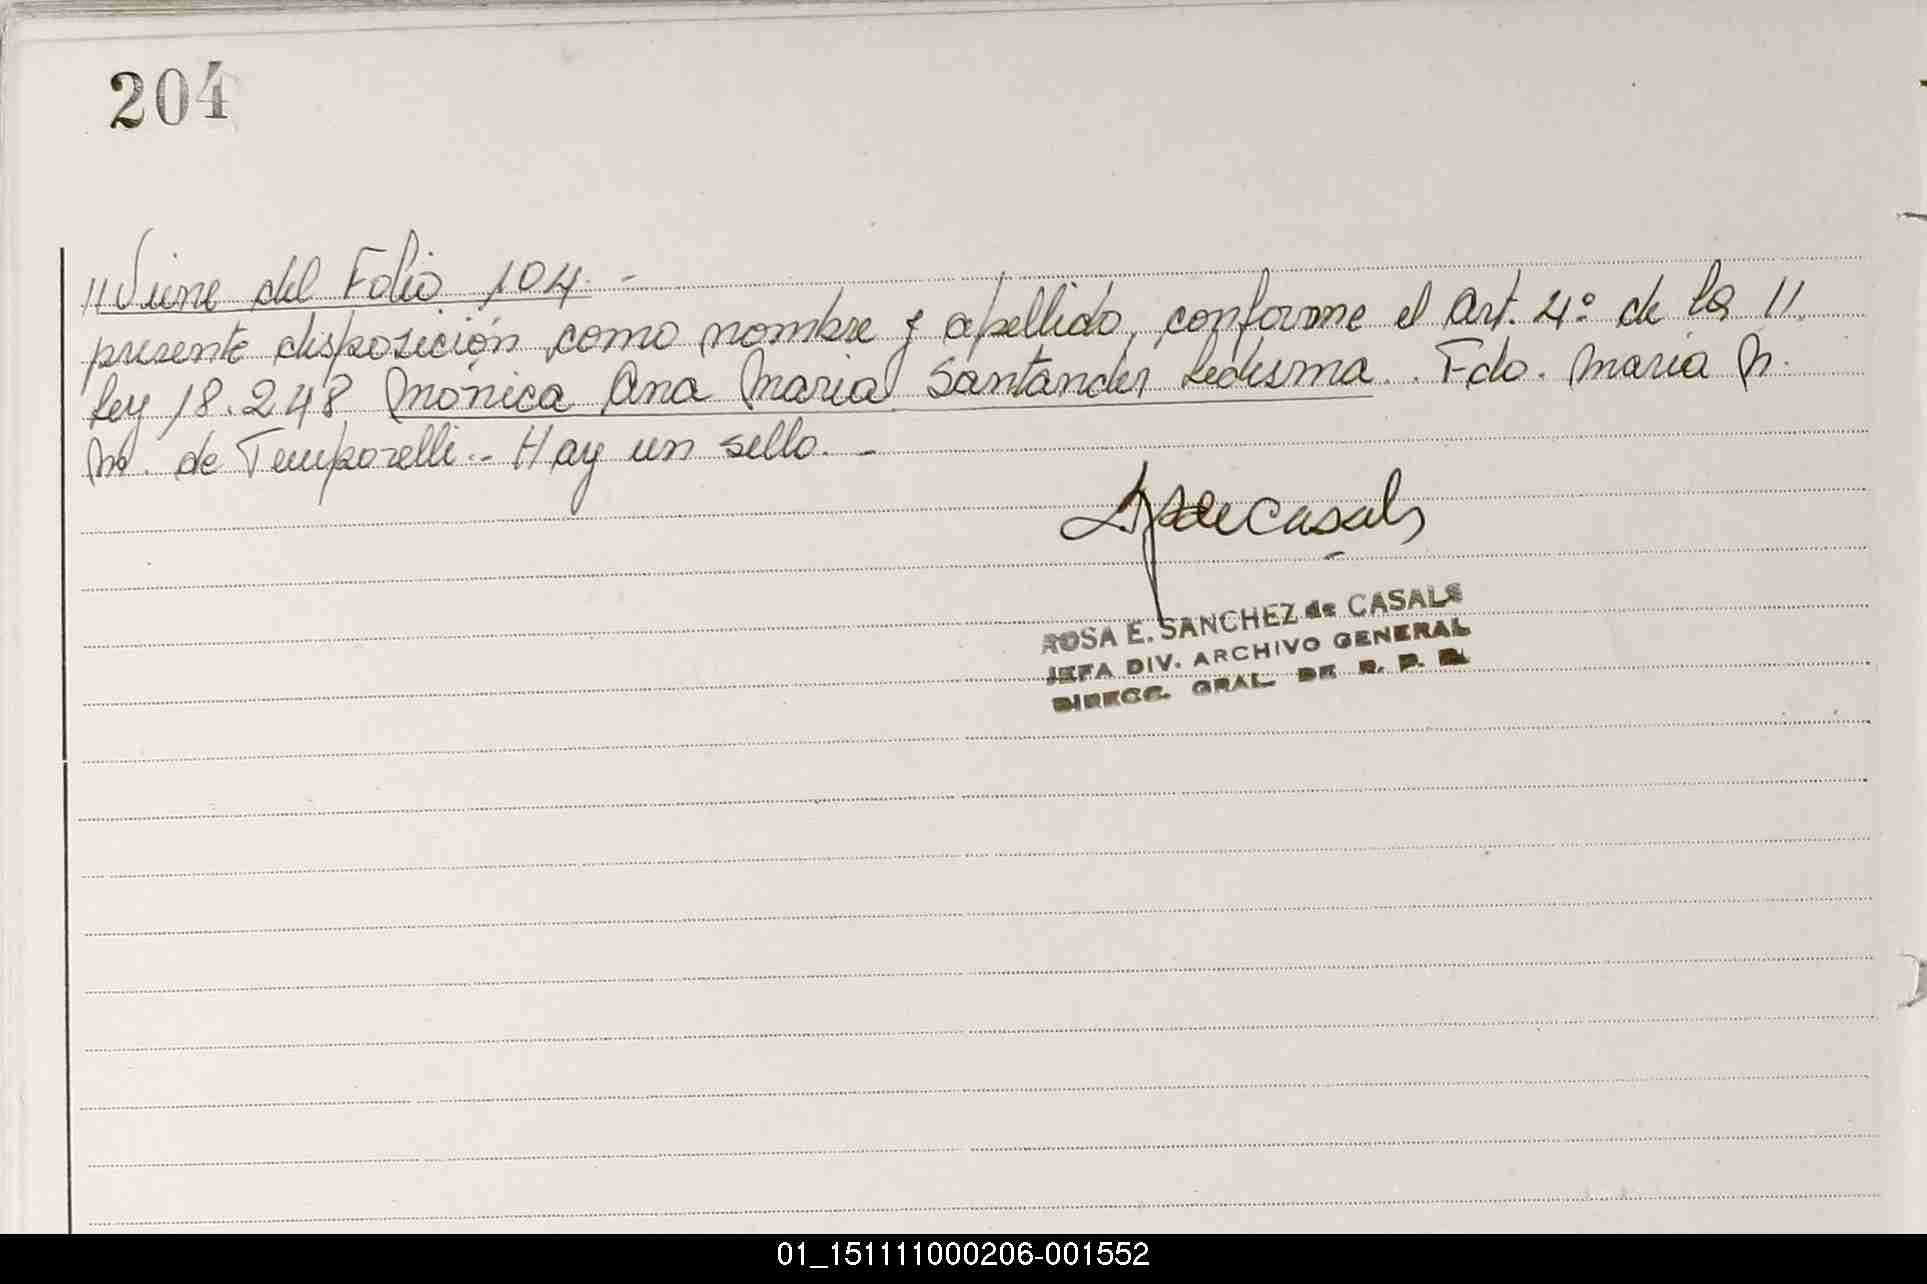 204
"Viene del Folio 104.-
presente disposición como nombre y apellido, conforme el Art. 4º de la "
Ley 18.248 Mónica Ana Maria Santander Ledesma. Fdo. Maria M.
M. de Temporelli.- Hay un sello.-
de Casals
ROSA E. SANCHEZ de CASALS
JEFA DIV. ARCHIVO GENERAL
DIRECC. GRAL. DE R. P. P.
01_151111000206-001552